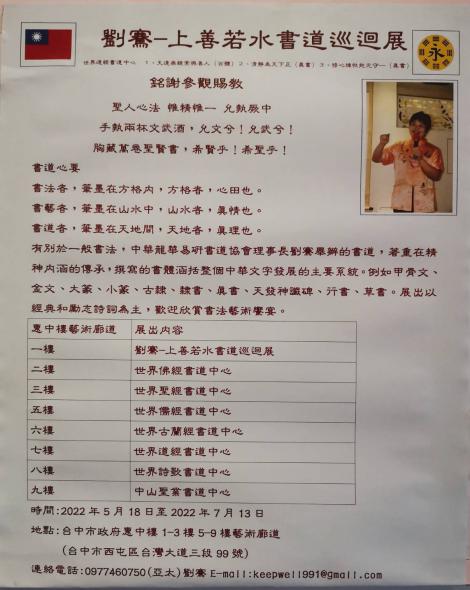 劉騫-上善若水書道巡迴展
永
世界道經書道中心
銘謝參觀賜教
聖人心法 惟精惟一 允執厥中
手執兩杯文武酒，允文兮！允武兮！
胸藏萬卷聖賢書，希賢乎！希聖乎！
書道心要
書法者，筆墨在方格內，方格者，心田也。
書藝者，筆墨在山水中，山水者，真情也。
書道者，筆墨在天地間，天地者，真理也。
有別於一般書法，中華龍華易研書道協會理事長劉騫舉辦的書道，著重在精
神內涵的傳承，撰寫的書體涵括整個中華文字發展的主要系統。例如甲骨文、
金文、大篆、小篆、古隸、隸書、真書、天發神讖碑、行書、草書。展出以
經典和勵志詩詞為主，歡迎欣賞書法藝術饗宴。
惠中樓藝術廊道 展出內容
一樓 劉騫-上善若水書道巡迴展
二樓 世界佛經書道中心
三樓 世界聖經書道中心
五樓 世界儒經書道中心
六樓 世界古蘭經書道中心
七樓 世界道經書道中心
八樓 世界詩歌書道中心
九樓 中山聖黨書道中心
時間:2022年5月18日至2022年7月13日
地點:台中市政府惠中樓1-3樓5-9樓藝術廊道
(台中市西屯區台灣大道三段99號)
連絡電話:0977460750(亞太)劉騫E-mail:keepwell991@gmail.com